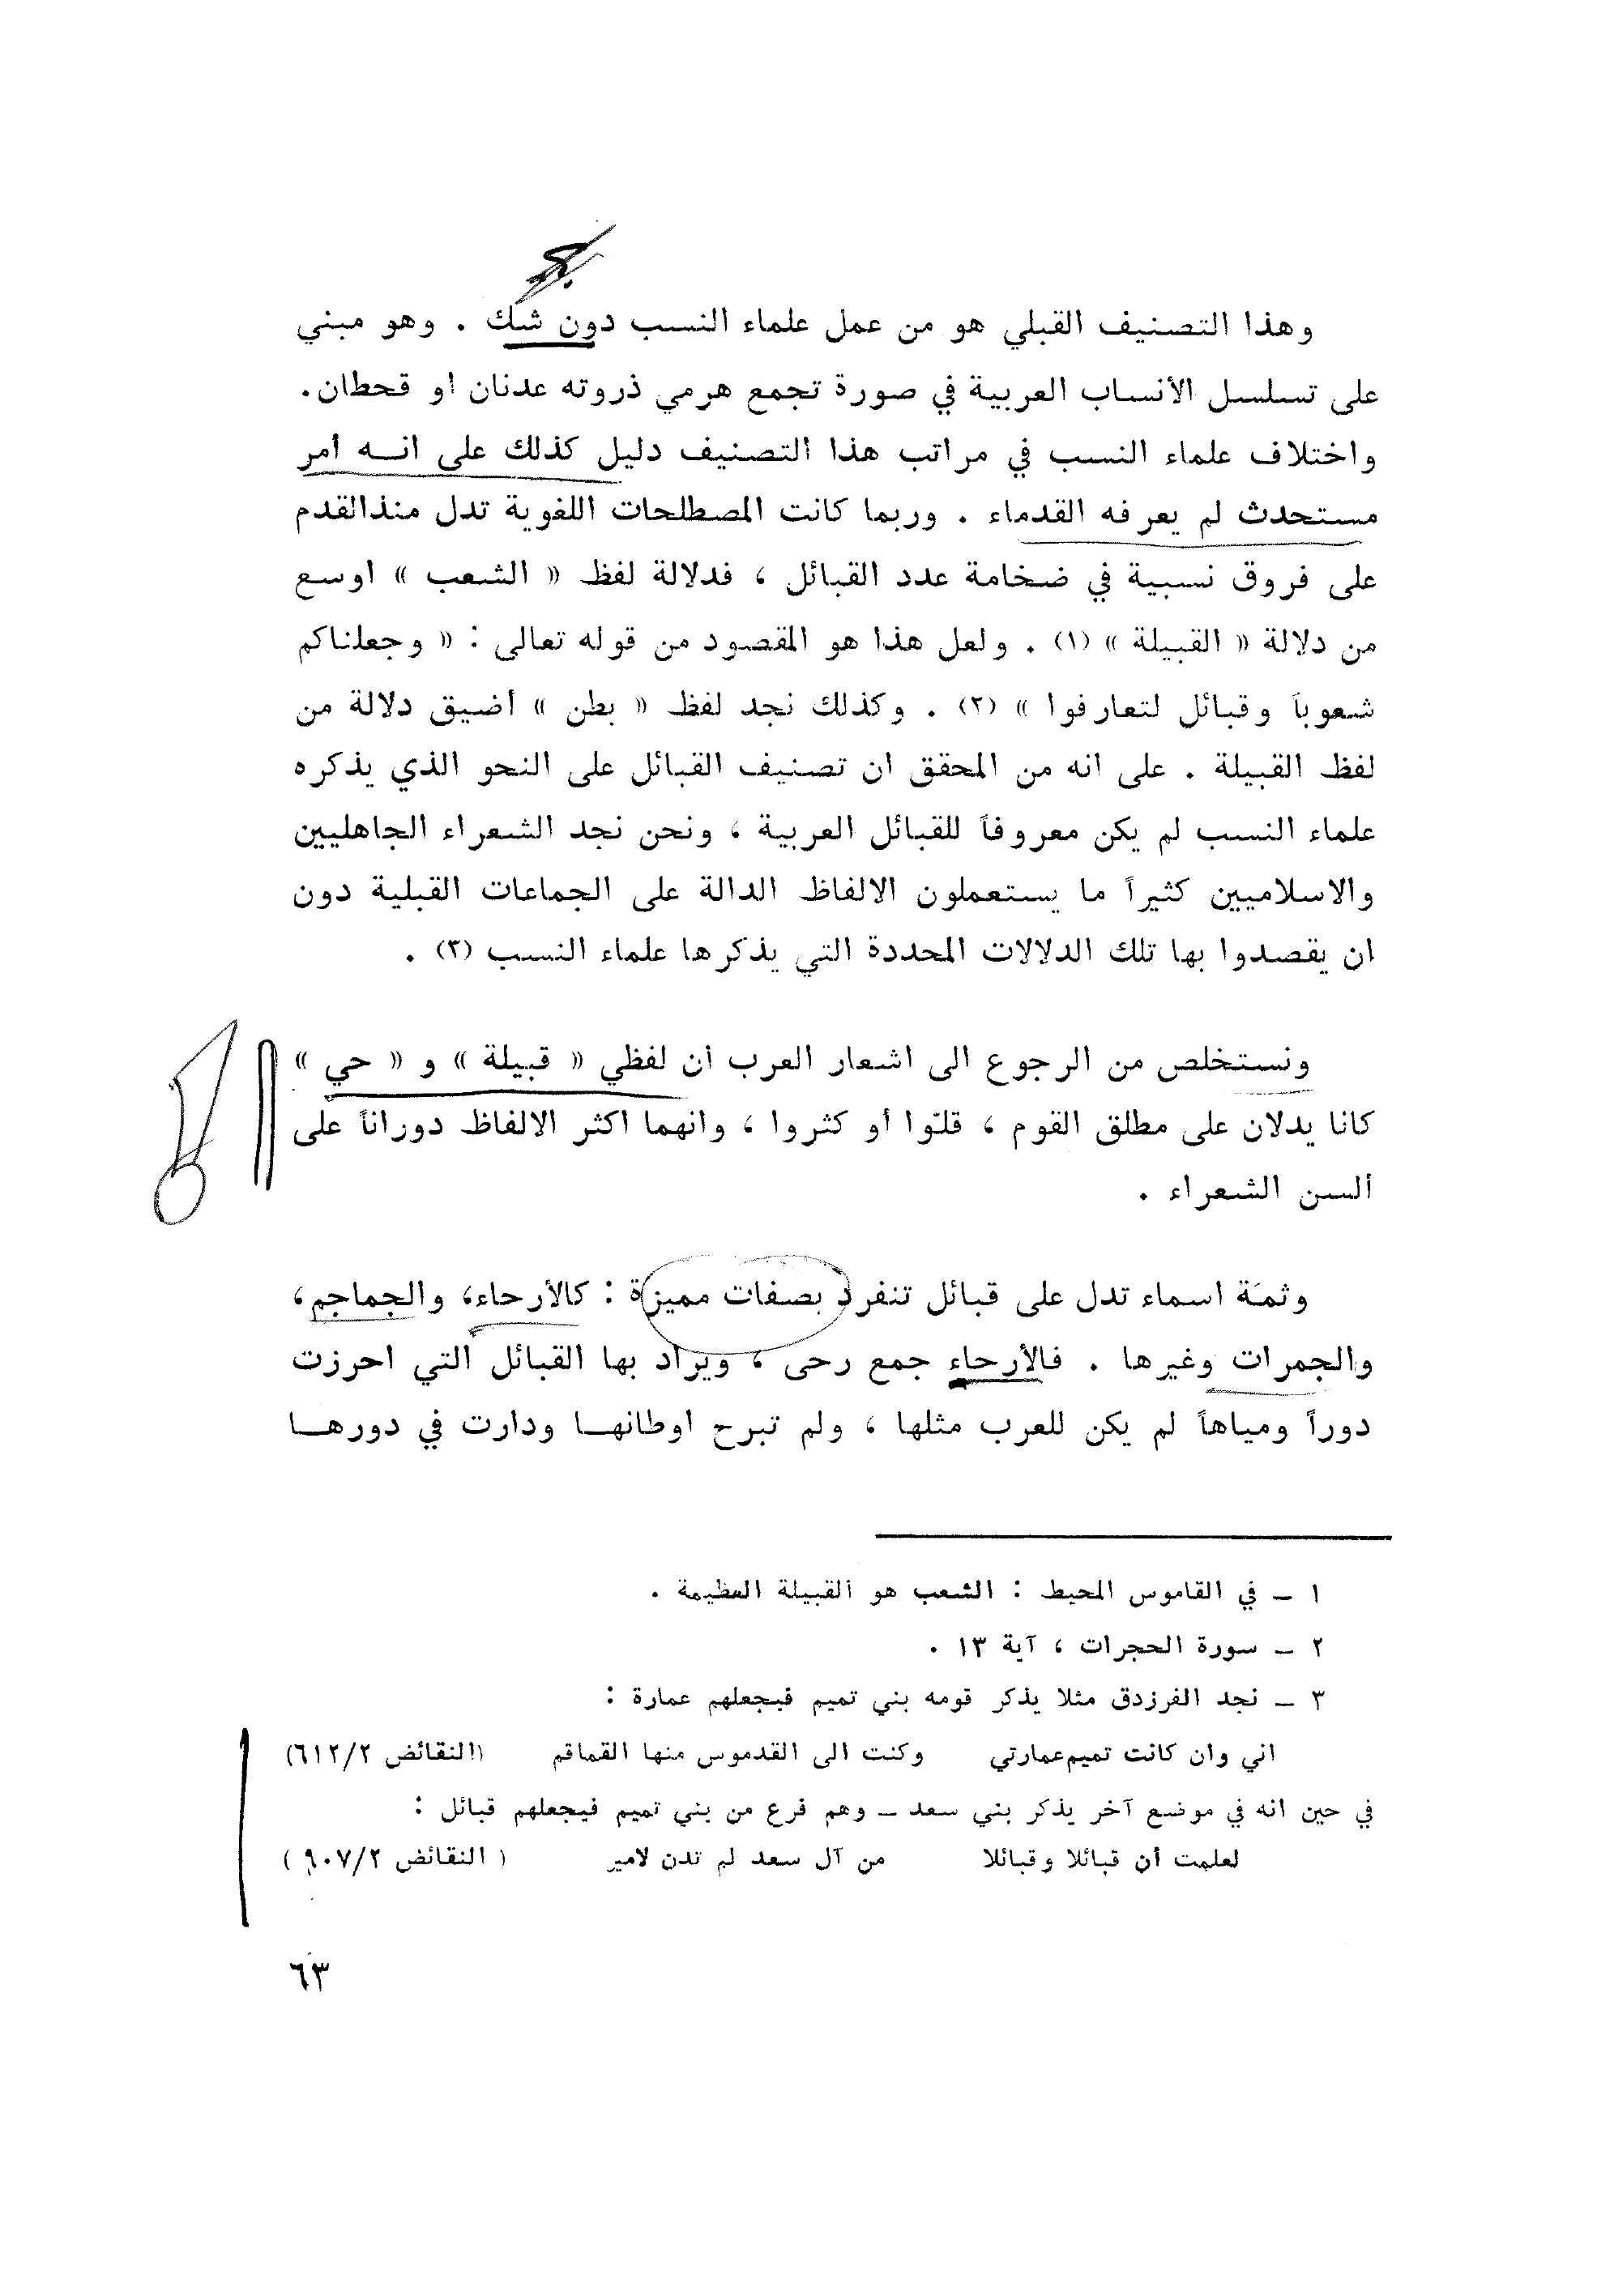 وهذا التصنيف القبلي هو من عمل علماء النسب دون شك . وهو مبني
على تسلسل الأنساب العربية في صورة تجمع هرمي ذروته عدنان او قحطان.
واختلاف علماء النسب في مراتب هذا التصنيف دليل كذلك على انــه أمر
مستحدث لم يعرفه القدماء . وربما كانت المصطلحات اللغوية تدل منذالقدم
على فروق نسبية في ضخامة عدد القبائل ، فدلالة لفظ « الشعب » اوسع
من دلالة « القبيلة » (١) . ولعل هذا هو المقصود من قوله تعالى : « وجعلناكم
شعوباً وقبائل لتعارفوا » (٢) . وكذلك نجد لفظ « بطن » أضيق دلالة من
لفظ القبيلة . على انه من المحقق ان تصنيف القبائل على النحو الذي يذكره
علماء النسب لم يكن معروفاً للقبائل العربية ، ونحن نجد الشعراء الجاهليين
والاسلاميين كثيراً ما يستعملون الالفاظ الدالة على الجماعات القبلية دون
ان يقصدوا بها تلك الدلالات المحددة التي يذكرها علماء النسب (٣) .
ونستخلص من الرجوع الى اشعار العرب أن لفظي « قبيلة » و « حي »
كانا يدلان على مطلق القوم ، قلّوا أو كثروا ، وانهما اكثر الالفاظ دوراناً على
ألسن الشعراء .
وثمَة اسماء تدل على قبائل تنفرد بصفات مميزة : كالأرحاء، والجماجم،
والجمرات وغيرها . فالأرحاء جمع رحى ، ويراد بها القبائل التي احرزت
دوراً ومياهاً لم يكن للعرب مثلها ، ولم تبرح اوطانهــا ودارت في دورهــا
١ ــ في القاموس المحيط : الشعب هو القبيلة العظيمة .
٢ ــ سورة الحجرات ، آية ١٣ .
٣ ــ نجد الفرزدق مثلا يذكر قومه بني تميم فيجعلهم عمارة :
اني وان كانت تميم عمارتي وكنت الى القدموس منها القماقم (النقائض ٦١٢/٢)
في حين انه في موضع آخر يذكر بني سعد ــ وهم فرع من بني تميم فيجعلهم قبائل :
لعلمت أن قبائلا وقبائلا من آل سعد لم تدن لامير ( النقائض ٩٠٧/٢ )
٦٣